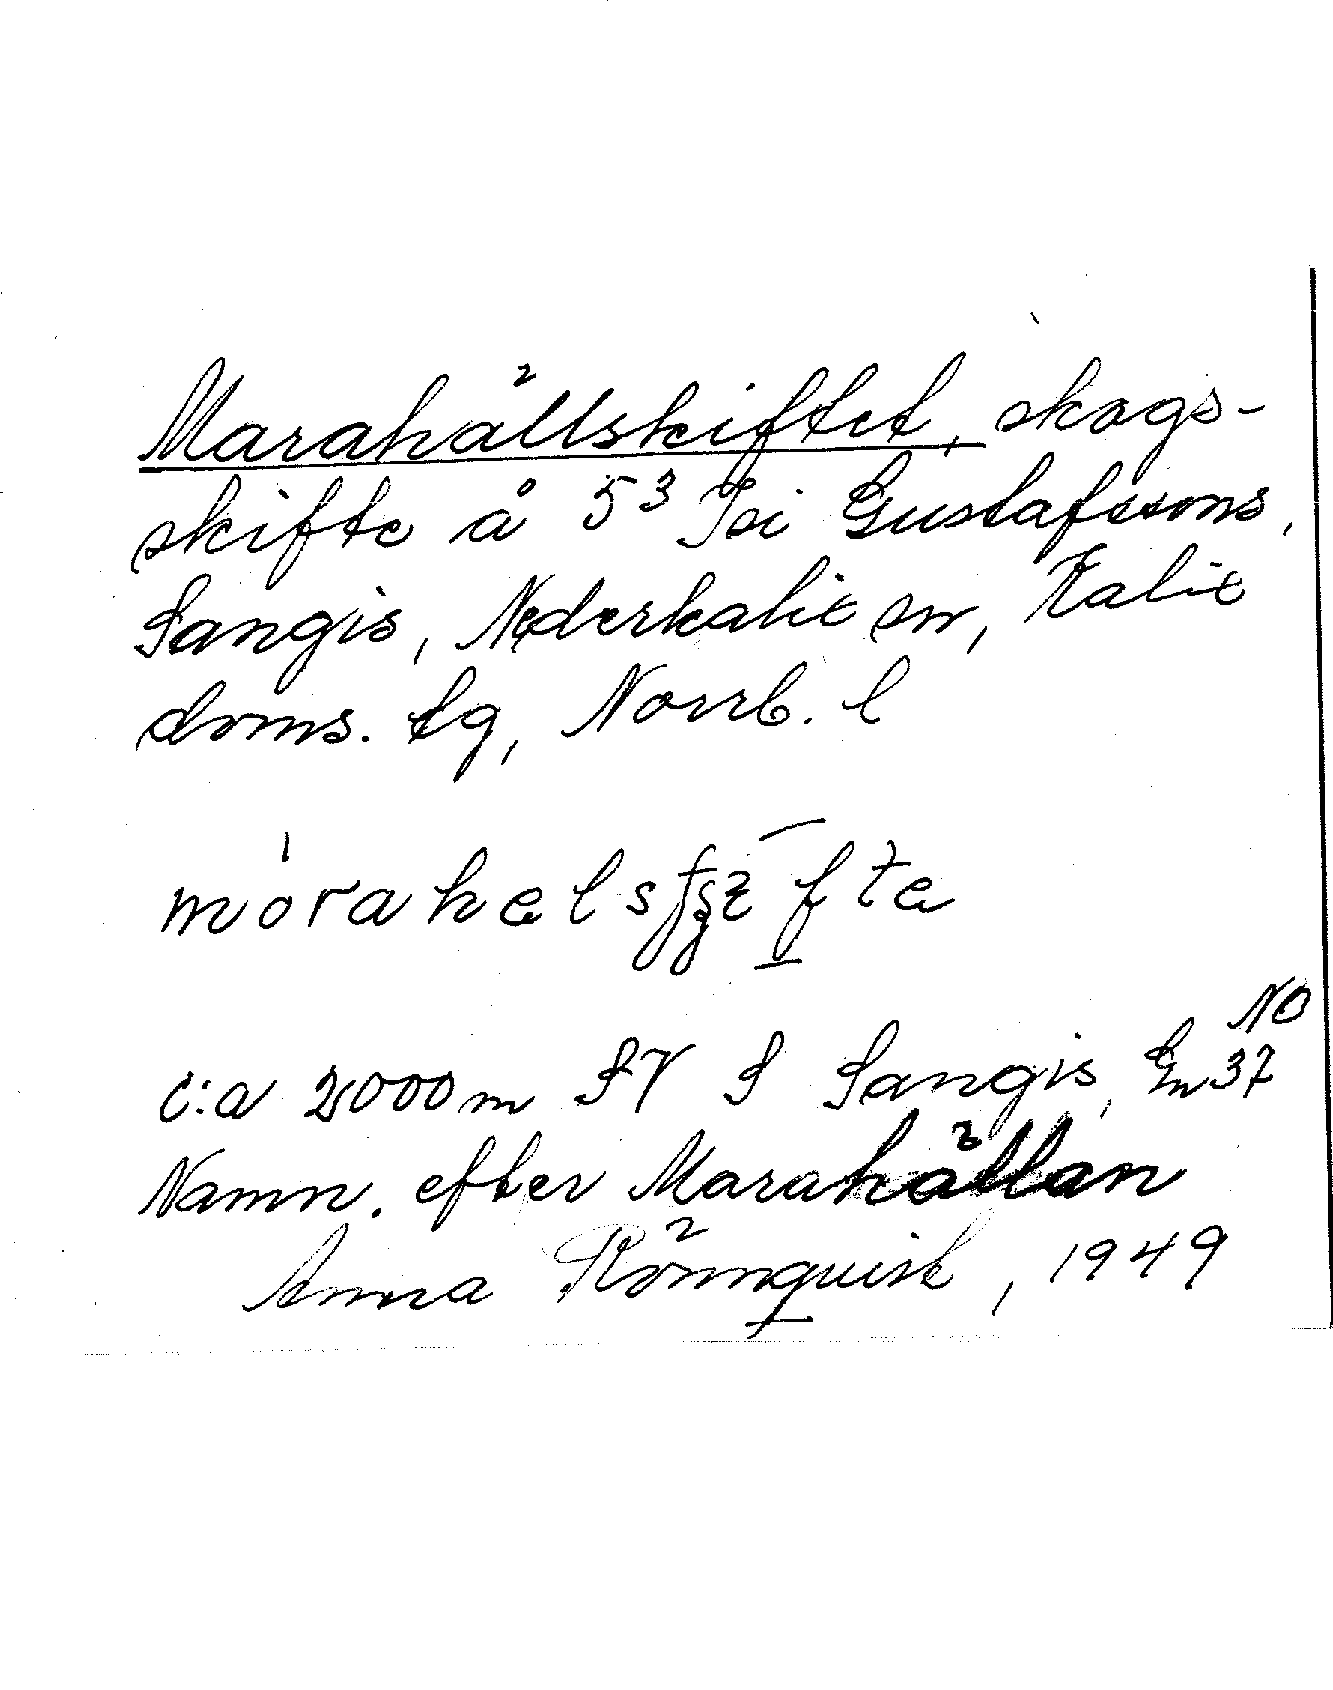 Marahällskiftet, skogs-
skifte å 5³ Gustafssons,
Sangis, Nederkalix sn, Kalix
doms. tg, Norrb. l
c:a 2000m SV S Sangis, Gn 37 NO
Namn. efter Marahällan
Anna Rönnquist, 1949